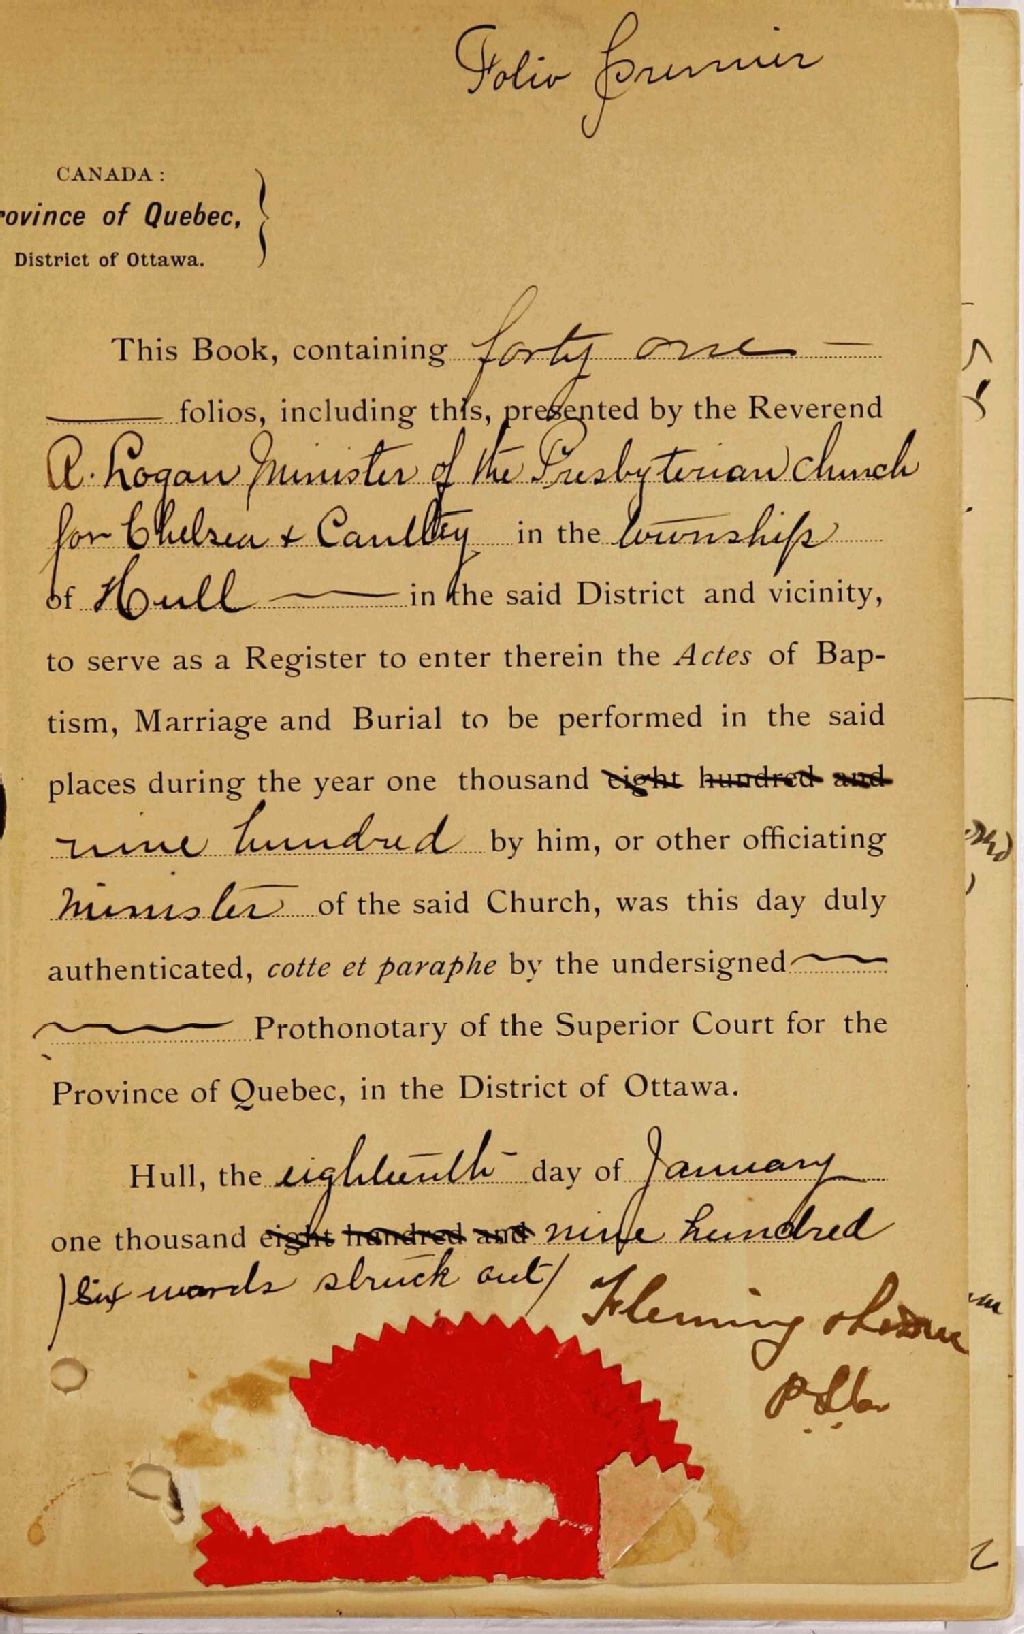 Folio premier
CANADA:
rovince of Quebec,
District of Ottawa.
This Book, containing forty one
folios, including this, presented by the Reverend
A. Logan Minister of the Presbyterian Church
for Chelsea & Cantley in the township
of Hull in the said District and vicinity,
to serve as a Register to enter therein the Actes of Bap-
tism, Marriage and Burial to be performed in the said
places during the year one thousand eight hundred and
nine hundred by him, or other officiating
minister of the said Church, was this day duly
authenticated, cotte et paraphe by the undersigned
Prothonotary of the Superior Court for the
Province of Quebec, in the District of Ottawa.
Hull, the eighteenth day of January
one thousand eight hundred and nine hundred
/six words struck out/
Fleming